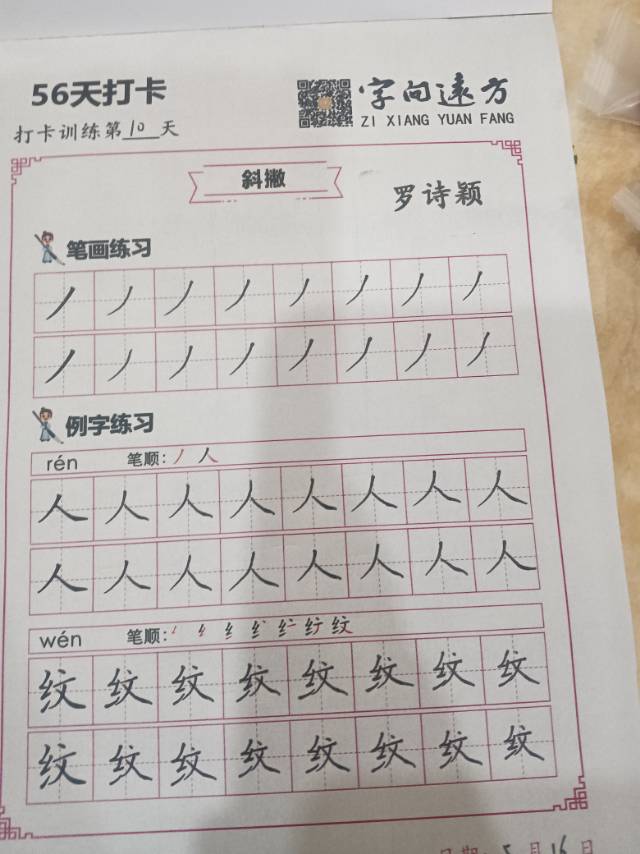 56天打卡
字向远方
ZI XIANG YUAN FANG
打卡训练第10天
斜撇
罗诗颖
笔画练习
丿丿丿丿丿丿丿丿
丿丿丿丿丿丿丿丿
例字练习
rén 笔顺: 丿 人
人人人人人人人人
人人人人人人人人
wén 笔顺: 纹
纹纹纹纹纹纹纹纹
纹纹纹纹纹纹纹纹
日期: 5月16日